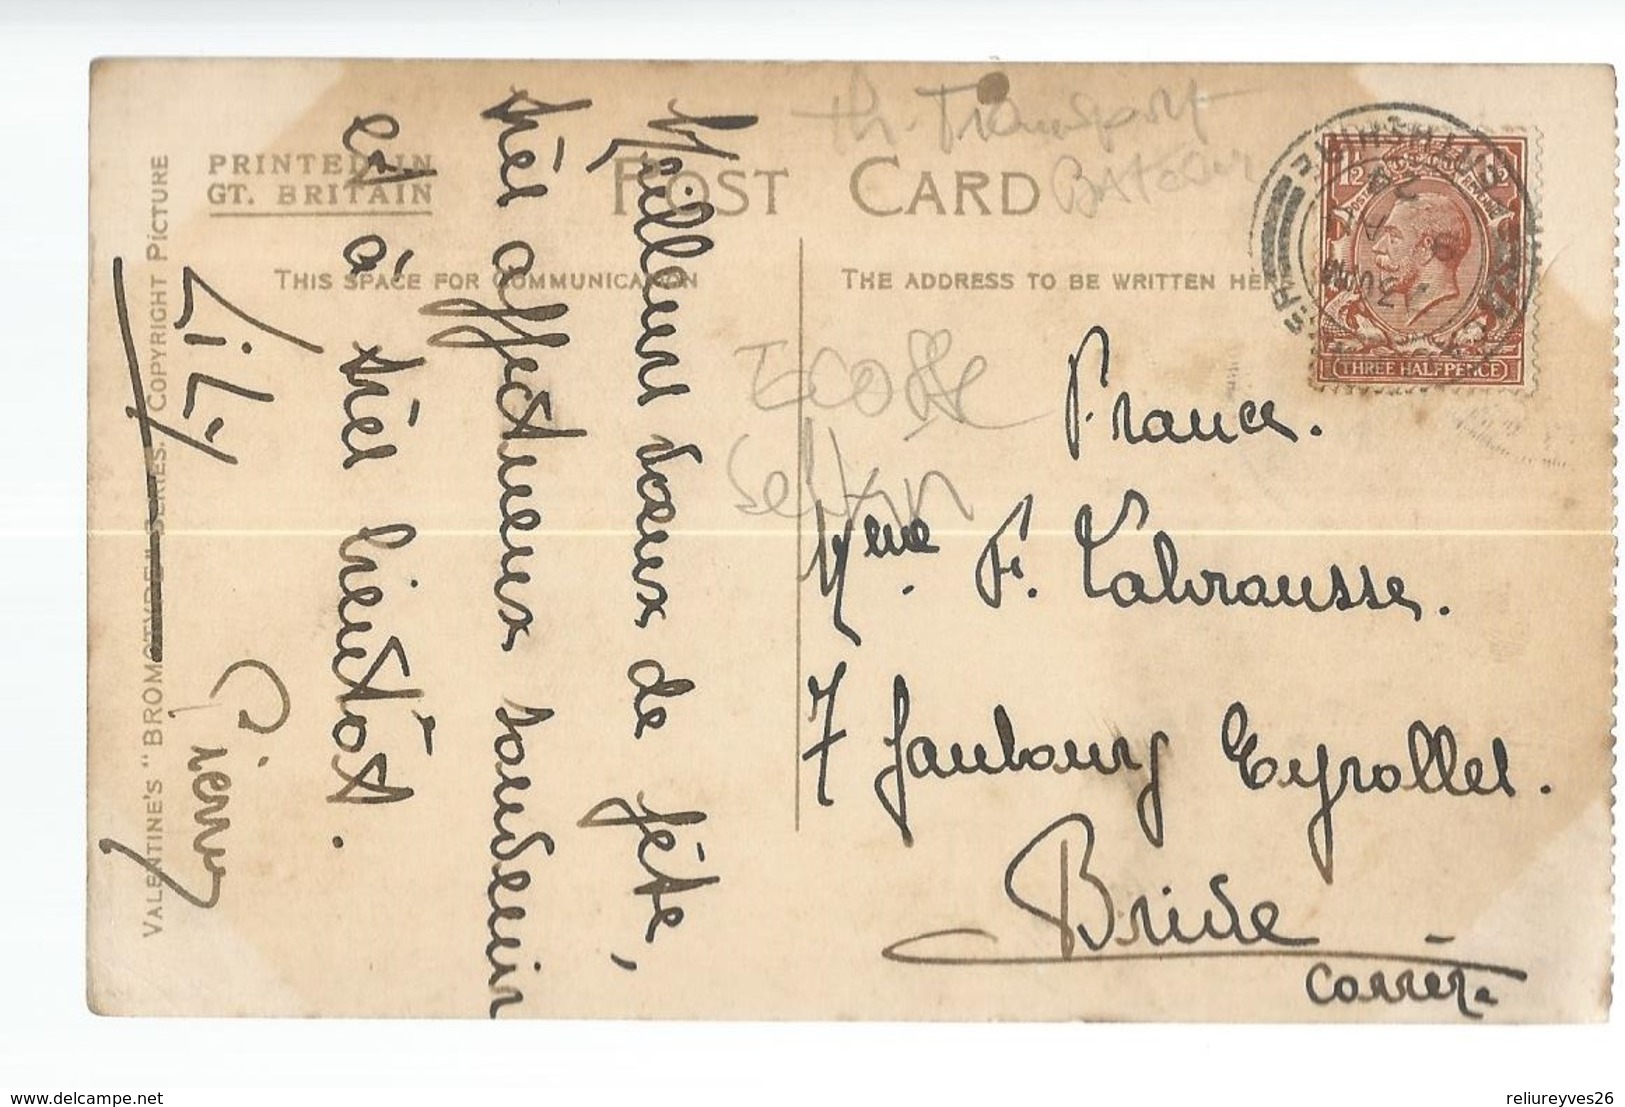 PRINTED IN
GT. BRITAIN
POST CARD
THIS SPACE FOR COMMUNICATION
THE ADDRESS TO BE WRITTEN HERE
VALENTINE'S "BROMOTYPE" SERIES. COPYRIGHT PICTURE
Meilleurs vœux de fête,
très affectueux souvenir
et à très bientôt.
LiLy
Pierre
th. Transport
Bateau
Ecosse
France.
Mme F. Labrousse.
7 Faubourg Eyrolles.
Brive
Corrèze
THREE HALFPENCE
www.delcampe.net
reliureyves26